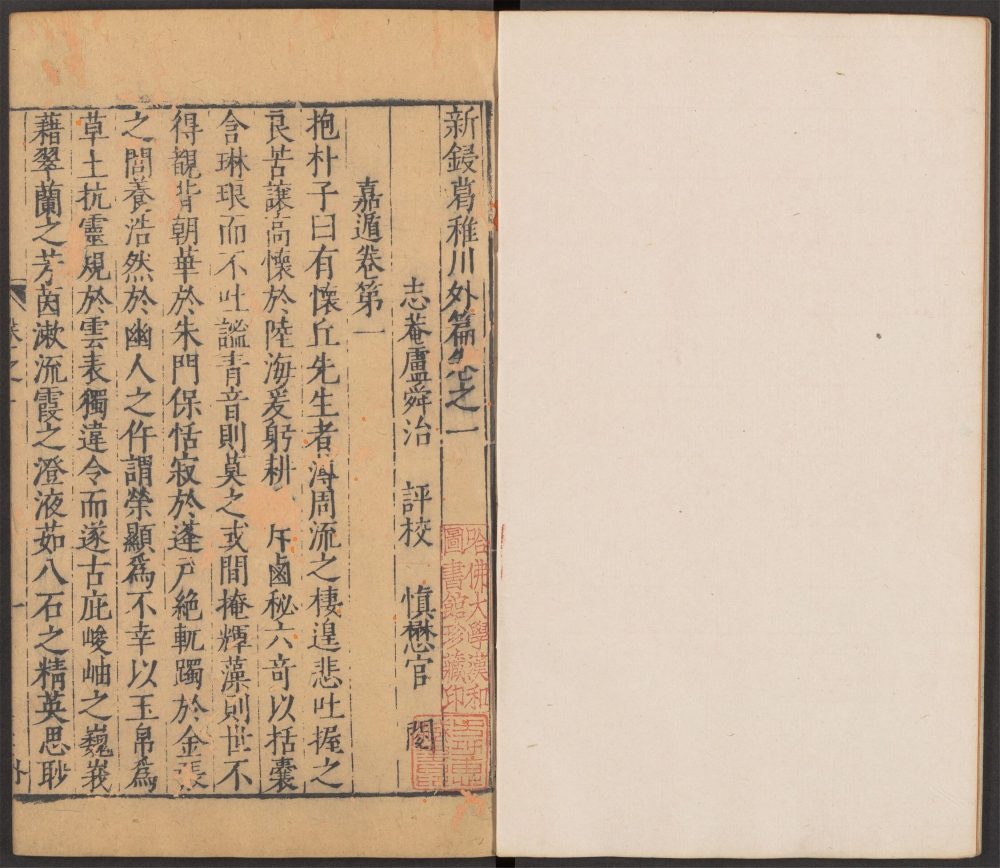 新鋟葛稚川外篇卷之一
志菴盧舜治 評校 慎懋官 閱
嘉遁卷第一
抱朴子曰有懷丘先生者薄周流之棲遑悲吐握之
良苦讓高懷於陸海爰躬耕 斥鹵秘六奇以括囊
含琳琅而不吐謐青音則莫之或間掩輝藻則世不
得覩背朝華於朱門保恬寂於蓬戶絕軌躅於金張
之閭養浩然於幽人之仵謂榮顯爲不幸以玉帛爲
草土抗靈規於雲表獨違令而遂古庇峻岫之巍峩
藉翠蘭之芳茵漱流霞之澄液茹八石之精英思眇
卷之一 一
外
哈佛大學漢和
圖書館珍藏印